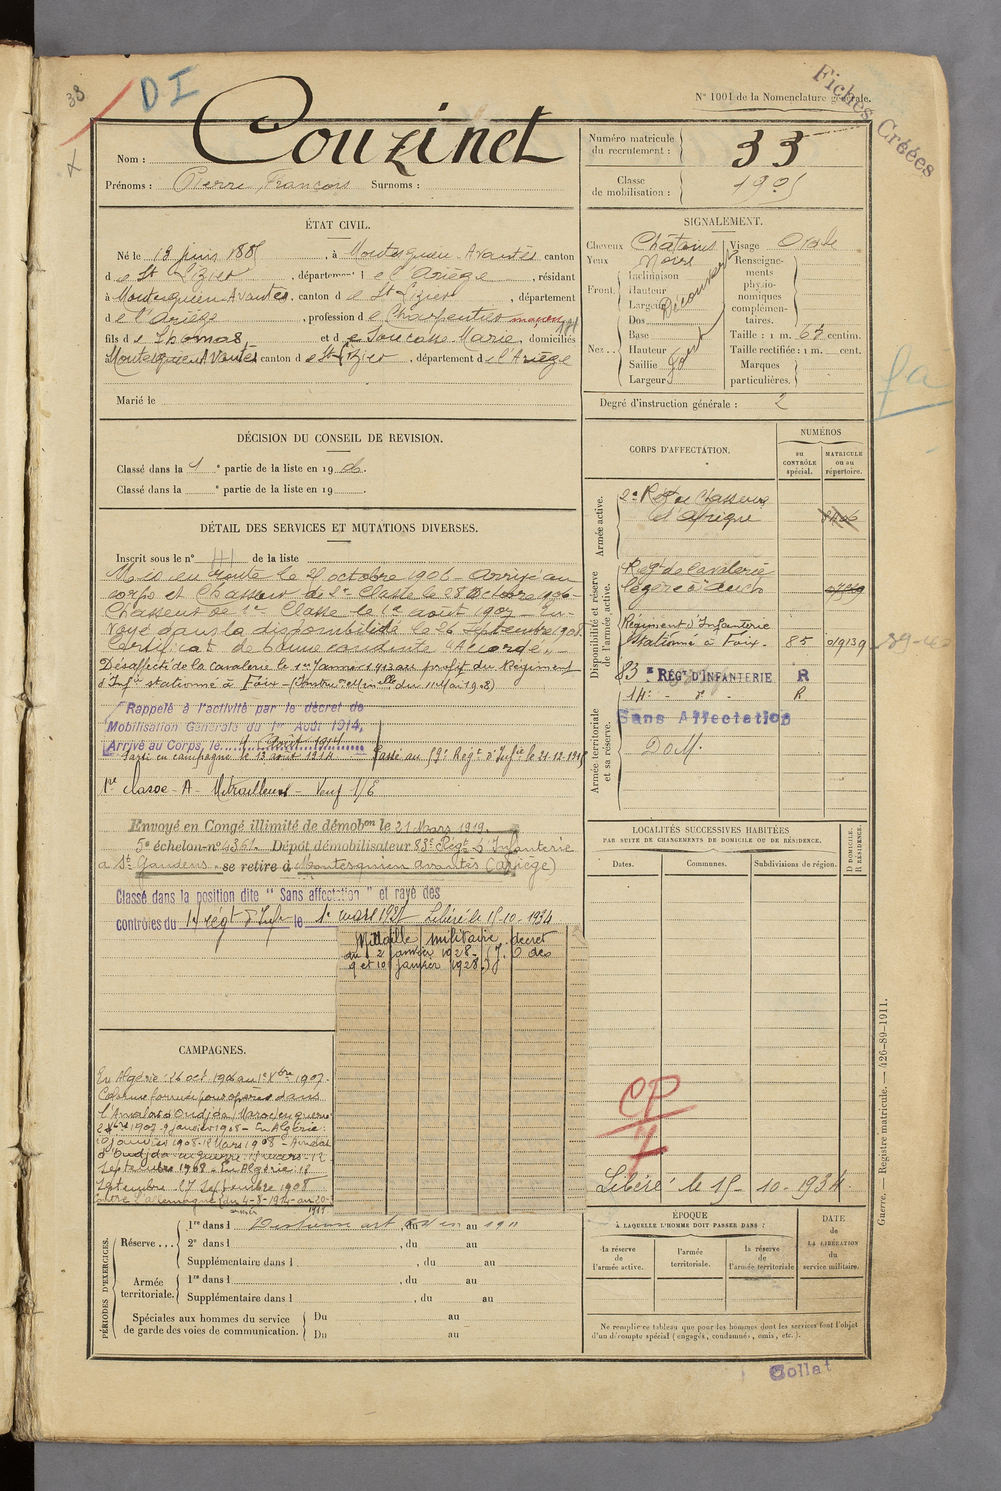 38
DI
N° 1001 de la Nomenclature générale.
Fiches Créées
Nom : Couzinet
Prénoms : Pierre François Surnoms :
Numéro matricule du recrutement : 33
Classe de mobilisation : 1905
ÉTAT CIVIL.
Né le 13 juin 1885, à Montesquieu-Avantès canton
de St Lizier, département de l'Ariège, résidant
à Montesquieu-Avantès, canton de St Lizier, département
de l'Ariège, profession de Charpentier maçon
fils de Thomas, et de Soucasse Marie, domiciliés
Montesquieu Avantès canton de St Lizier, département de l'Ariège
Marié le
SIGNALEMENT.
Cheveux Châtains
Yeux Noirs
Front. Inclinaison
Hauteur
Largeur
Découvert
Nez.. Dos
Base
Hauteur
Saillie
Largeur
Visage Ovale
Renseignements physionomiques complémentaires.
Taille : 1 m. 67 centim.
Taille rectifiée : 1 m. cent.
Marques particulières.
Degré d'instruction générale : 2
DÉCISION DU CONSEIL DE REVISION.
Classé dans la 1e partie de la liste en 1906.
Classé dans la e partie de la liste en 19 .
DÉTAIL DES SERVICES ET MUTATIONS DIVERSES.
Inscrit sous le n° de la liste
Mis en route le octobre 1906 - Arrivé au
corps et Chasseur de 2e Classe le 28 Octobre 1906 -
Chasseur de 1re Classe le 1er août 1907 - En-
voyé dans la disponibilité le 26 Septembre 1908
Certificat de bonne conduite "Accordé" -
Désaffecté de la cavalerie le 1er Janvier 1913 au profit du Régiment
d'Infie stationné à Foix - (Instron Mlle du 11 Mai 1912)
Rappelé à l'activité par le décret de
Mobilisation Générale du 1er Août 1914,
Arrivé au Corps, le Août 1914
Parti en campagne le 13 août 1914
Passé au Régt d'Infie le 21-12-
1re classe - A - Mitrailleur -
Envoyé en Congé illimité de démobon le 21 Mars 1919
5e échelon-n° 4361 Dépôt démobilisateur 83e Régt d'Infanterie
à St Gaudens. se retire à Montesquieu avantès (Ariège)
Classé dans la position dite " Sans affectation " et rayé des
contrôles du 14 régt d'Inf le 1er mars 1927 Libéré le 15-10-1934
Médaille militaire, décret
du 2 janvier 1928 - (J. O des
9 et 10 janvier 1928)
CORPS D'AFFECTATION.
NUMÉROS
au CONTRÔLE spécial.
MATRICULE ou au répertoire.
Armée active.
2e Régt de Chasseurs
d'Afrique
Disponibilité et réserve de l'armée active.
Régt de Cavalerie
légère à Auch
Régiment d'Infanterie
stationné à Foix. 85 01913
83e RÉGt D'INFANTERIE R
14e - d° - R
Armée territoriale et sa réserve.
Sans Affectation
DOM.
LOCALITÉS SUCCESSIVES HABITÉES
PAR SUITE DE CHANGEMENTS DE DOMICILE OU DE RÉSIDENCE.
Dates. Communes. Subdivisions de région.
D DOMICILE. R RÉSIDENCE.
CP
7
Libéré le 15-10-1934.
CAMPAGNES.
En Algérie : 26 oct 1906 au 1er Xbre 1907.
Colonne formée pour opérer dans
l'Amalat d'Oudjda (Maroc) en guerre
2 Xbre 1907 - 9 janvier 1908 - En Algérie :
10 janvier 1908 - 12 Mars 1908 - Amalat
d'Oudjda en guerre : 13 mars - 12
Septembre 1908 - En Algérie : 13
Septembre 27 Septembre 1908
Contre l'Allemagne (du 4-8-1914 au 20-
1919
PÉRIODES D'EXERCICES.
Réserve... 1re dans l , du au 1911
2e dans l , du au
Supplémentaire dans l , du au
Armée territoriale. 1re dans l , du au
Supplémentaire dans l , du au
Spéciales aux hommes du service de garde des voies de communication. Du au
Du au
ÉPOQUE
À LAQUELLE L'HOMME DOIT PASSER DANS :
la réserve de l'armée active.
l'armée territoriale.
la réserve de l'armée territoriale
DATE de LA LIBÉRATION du service militaire.
Ne remplir ce tableau que pour les hommes dont les services font l'objet
d'un décompte spécial (engagés, condamnés, omis, etc.).
Guerre. — Registre matricule. — 426-89-1911.
Collat